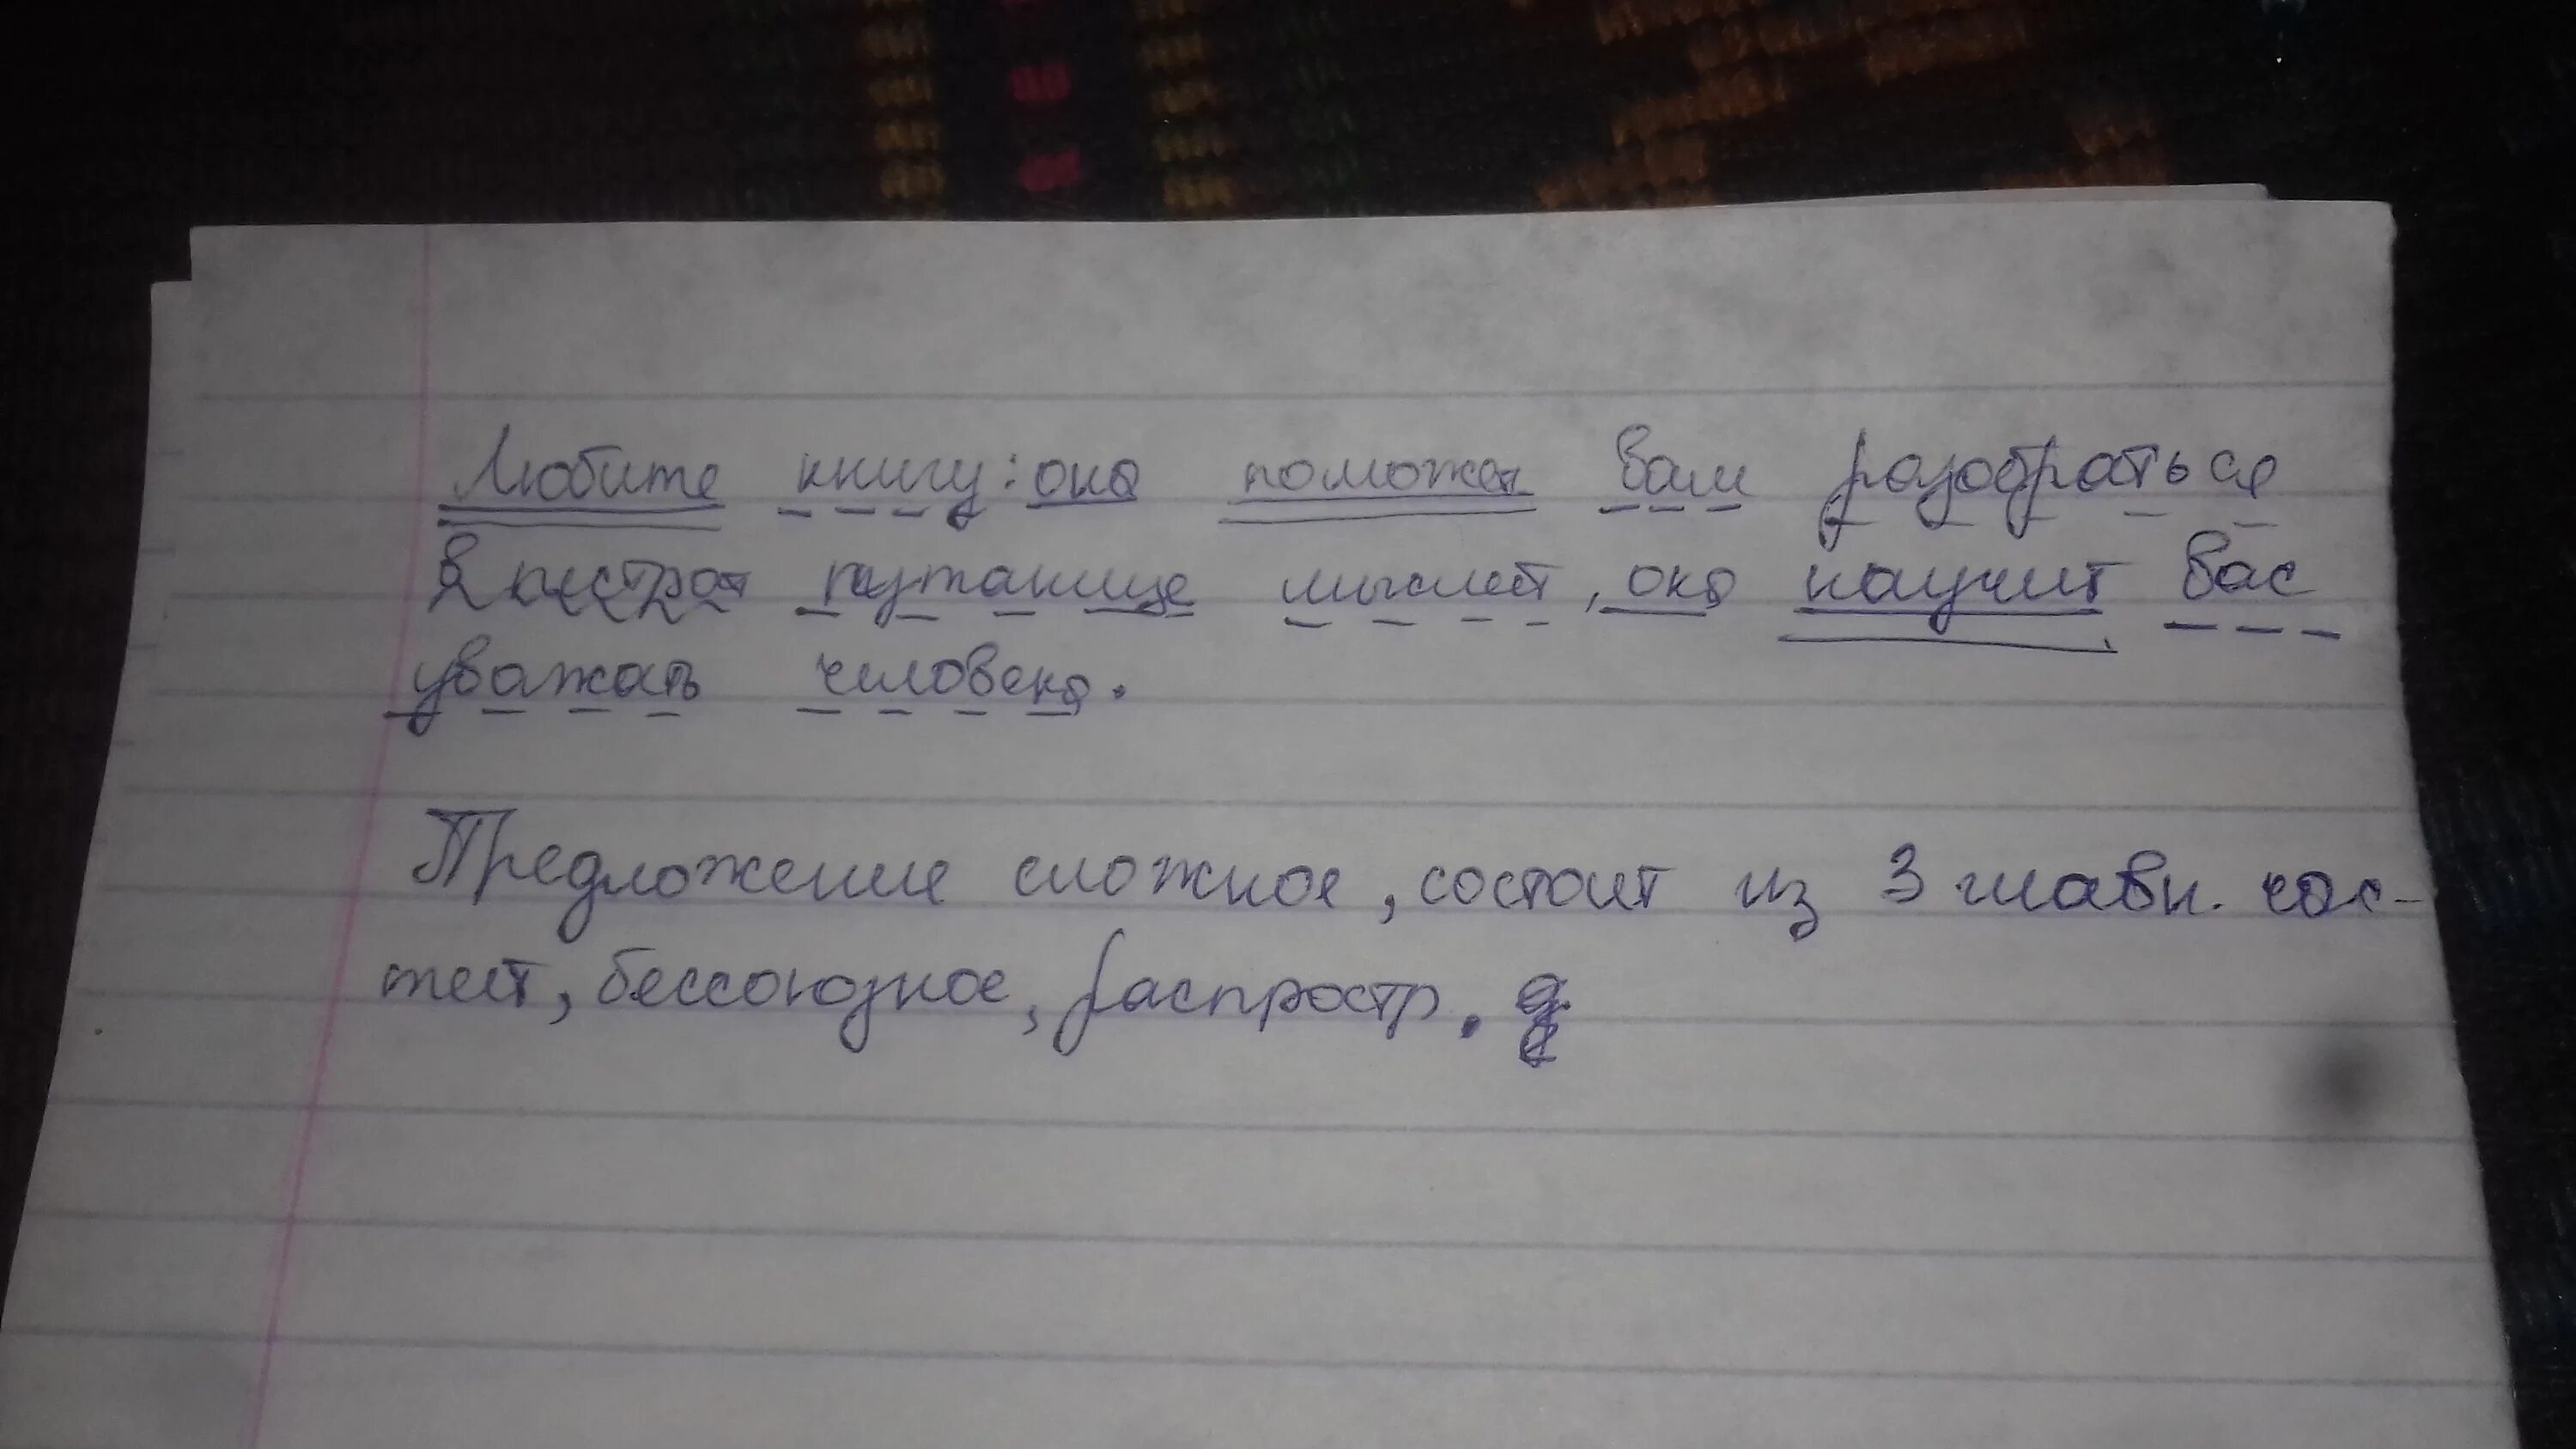 Любите книгу: она поможет вам разобраться
в пестрой путанице мыслей, она научит вас
уважать человека.
Предложение сложное, состоит из 3 главн. час-
тей, бессоюзное, распростр.